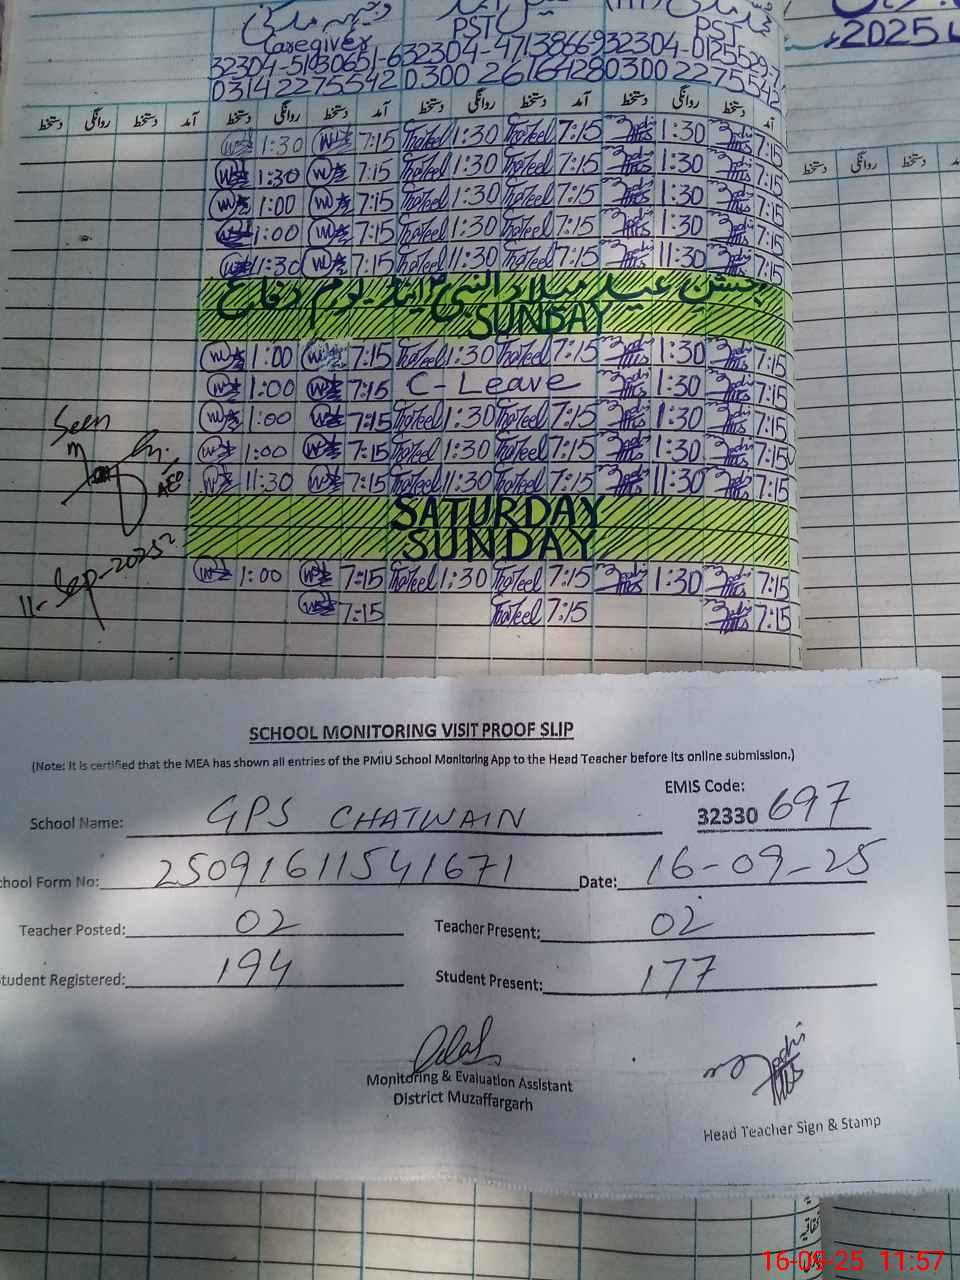 2025
Caregiver PST PST
32304-5190651-6 32304-4713866-9 32304-0125529-7
0314 2275542 0300 2616428 0300 2275542
دستخط روانگی دستخط آمد دستخط روانگی دستخط آمد دستخط روانگی دستخط آمد دستخط روانگی دستخط آمد
دستخط روانگی دستخط
1:30 7:15 1:30 7:15 1:30 7:15
1:30 7:15 1:30 7:15 1:30 7:15
1:00 7:15 1:30 7:15 1:30 7:15
1:00 7:15 1:30 7:15 1:30 7:15
11:30 7:15 11:30 7:15 11:30 7:15
جشن عید میلاد النبی اینڈ یوم دفاع
SUNDAY
1:00 7:15 1:30 7:15 1:30 7:15
1:00 7:15 C-Leave 1:30 7:15
1:00 7:15 1:30 7:15 1:30 7:15
1:00 7:15 1:30 7:15 1:30 7:15
11:30 7:15 11:30 7:15 11:30 7:15
Seen
AEO
11-Sep-2025
SATURDAY
SUNDAY
1:00 7:15 1:30 7:15 1:30 7:15
7:15 7:15 7:15
SCHOOL MONITORING VISIT PROOF SLIP
(Note: It is certified that the MEA has shown all entries of the PMIU School Monitoring App to the Head Teacher before its online submission.)
School Name: GPS CHATWAIN EMIS Code: 32330 697
chool Form No: 25091611541671 Date: 16-09-25
Teacher Posted: 02 Teacher Present: 02
tudent Registered: 194 Student Present: 177
Monitoring & Evaluation Assistant
District Muzaffargarh
Head Teacher Sign & Stamp
16-09-25 11:57